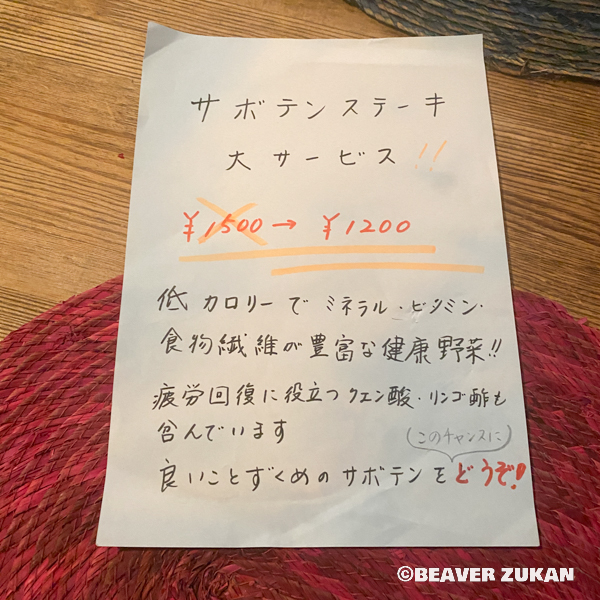 サボテンステーキ
大サービス!!
¥1500→¥1200
低カロリーでミネラル・ビタミン・
食物繊維が豊富な健康野菜!!
疲労回復に役立つクエン酸・リンゴ酢も
含んでいます
(このチャンスに)
良いことずくめのサボテンをどうぞ!
©BEAVER ZUKAN